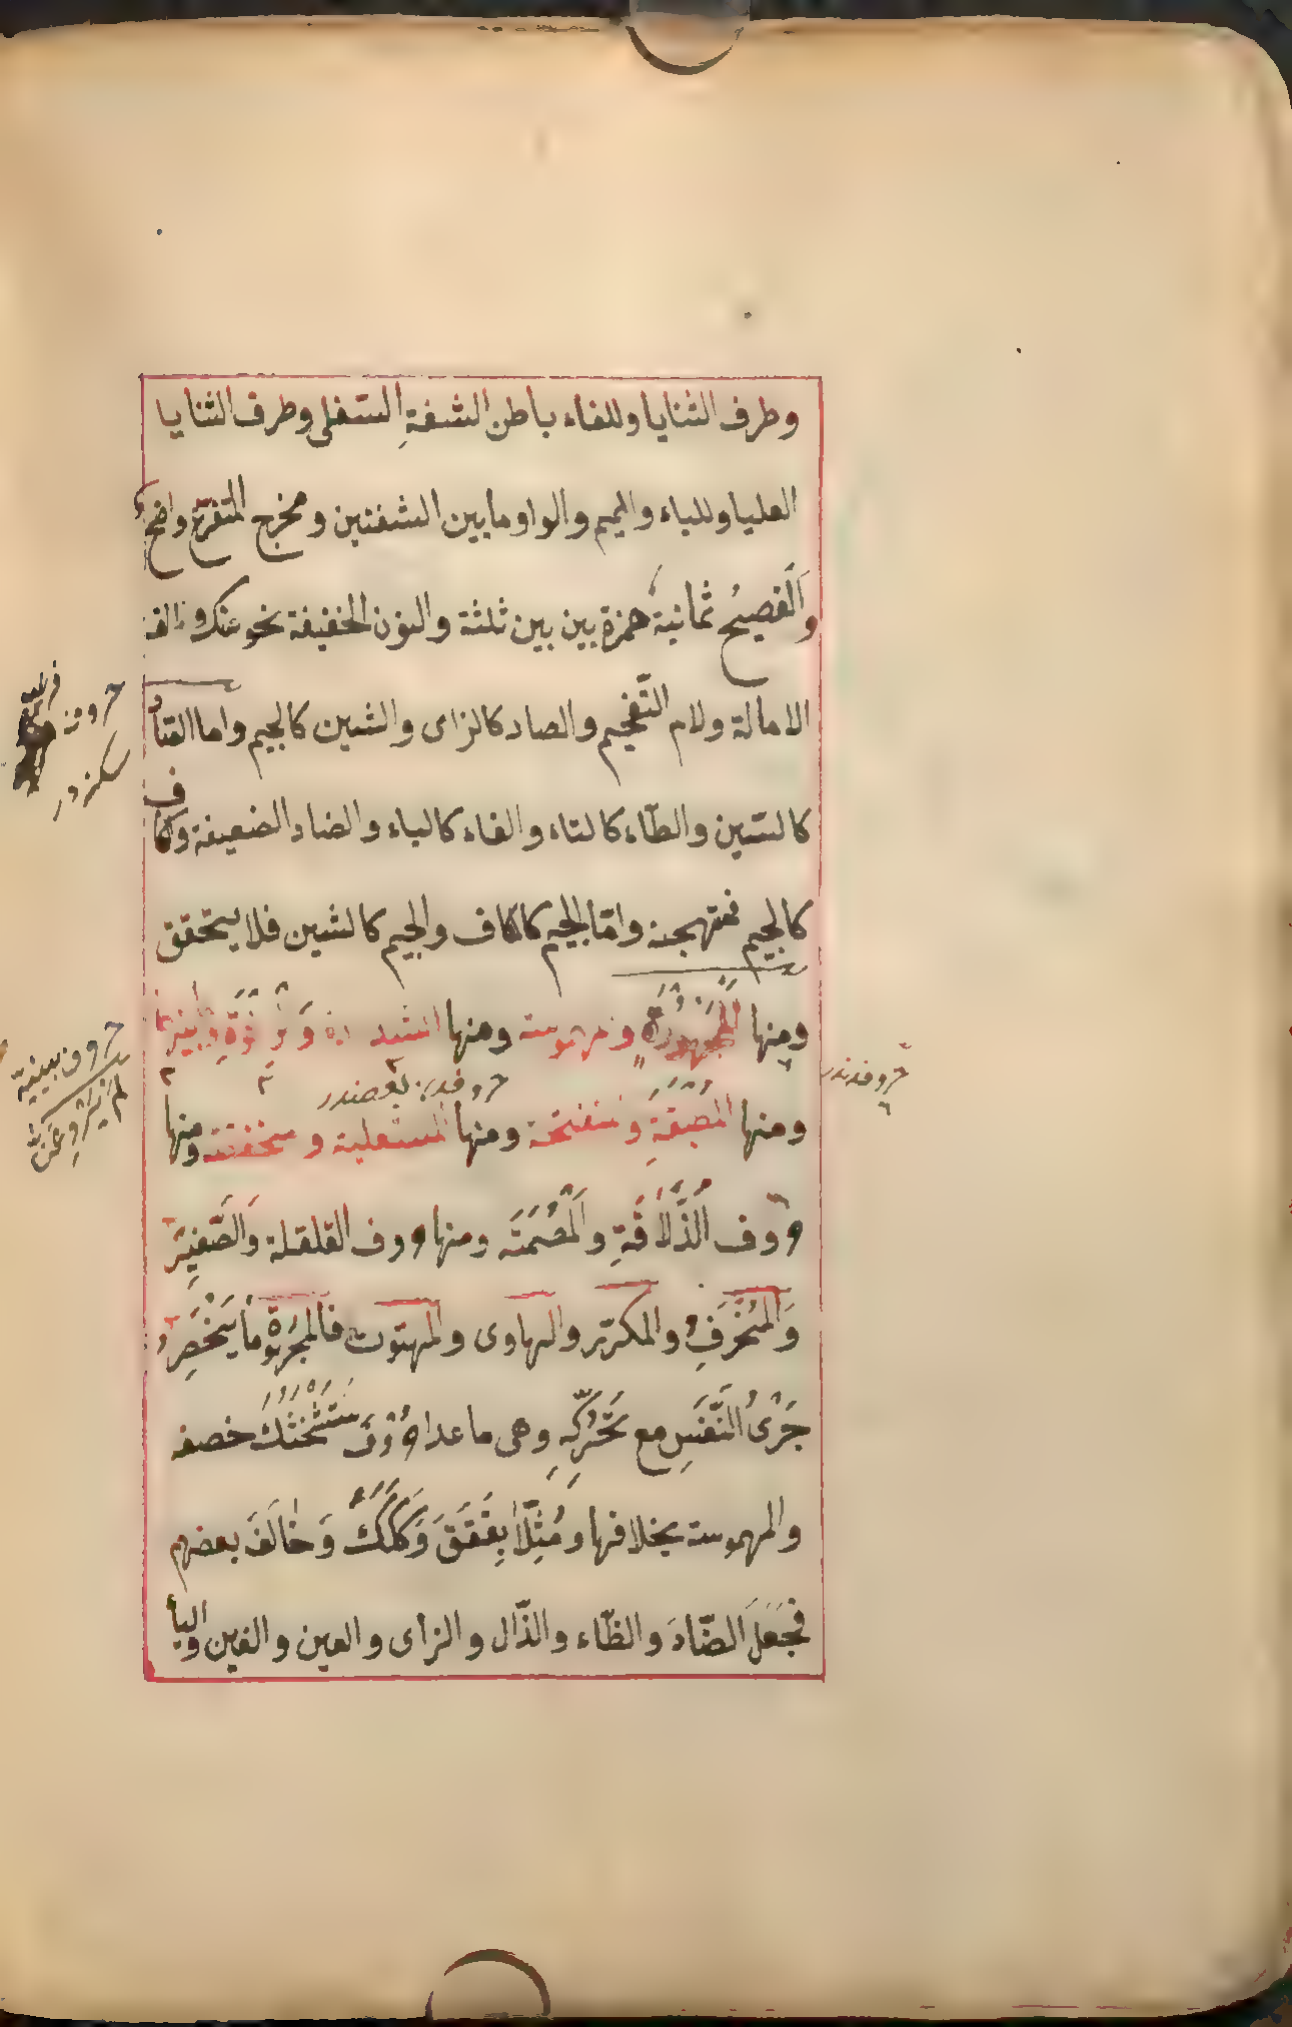 وطرف الثنايا وللفاء باطن الشفةِ السّفلى وطرف الثنايا
العليا وللباء والميم والواو ما بين الشفتين ومخرج المتفرّع واضح
والفصيحُ ثمانية همزة بين بين ثلثة والنون الخفيفة نحو عنك والف
الامالة ولام التّفخيم والصاد كالزاى والشين كالجيم واما الصّاد
كالسّين والطّاء كالتاء والفاء كالباء والضاد الضعيفة وكاف
كالجيم فمتهجنة وامّا الجيم كالكاف والجيم كالشين فلا يتحقق
ومنها المجهورة ومهموسة ومنها الشديدة وَرِخْوَة وما بينهما
ومنها المطبقةِ ومنفتحة ومنها المستعلية ومنخفضة ومنها
حروف الذَّلاقَةِ والْمُصْمَتَة ومنها حروف القلقلة والصَّفيرِ
وَالْمُنْحَرفِ والمكرّر والهاوى والمهتوت فالمجهورة ما يَنْحَصِرُ
جَرْىُ النَّفَسِ مع تَحَرُّكِهِ وهى ما عدا حُرُوف سَتَشْحَثُكَ خصفه
والمهموسة بخلافها ومُثِّلَا بِقَقَقَ وَكَكَكَ وَخَالَفَ بعضهم
فجَعَلَ الضّادَ والظّاء والذّال والزاى والعين والغين والياء
حروف
سكزدر
حروف بينية
لَمْ يَرْوِ عَنَّا